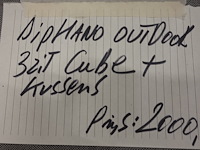 DipHANO OUTDOOR
3ZiT Cube +
Kussens
Prijs: 2000,